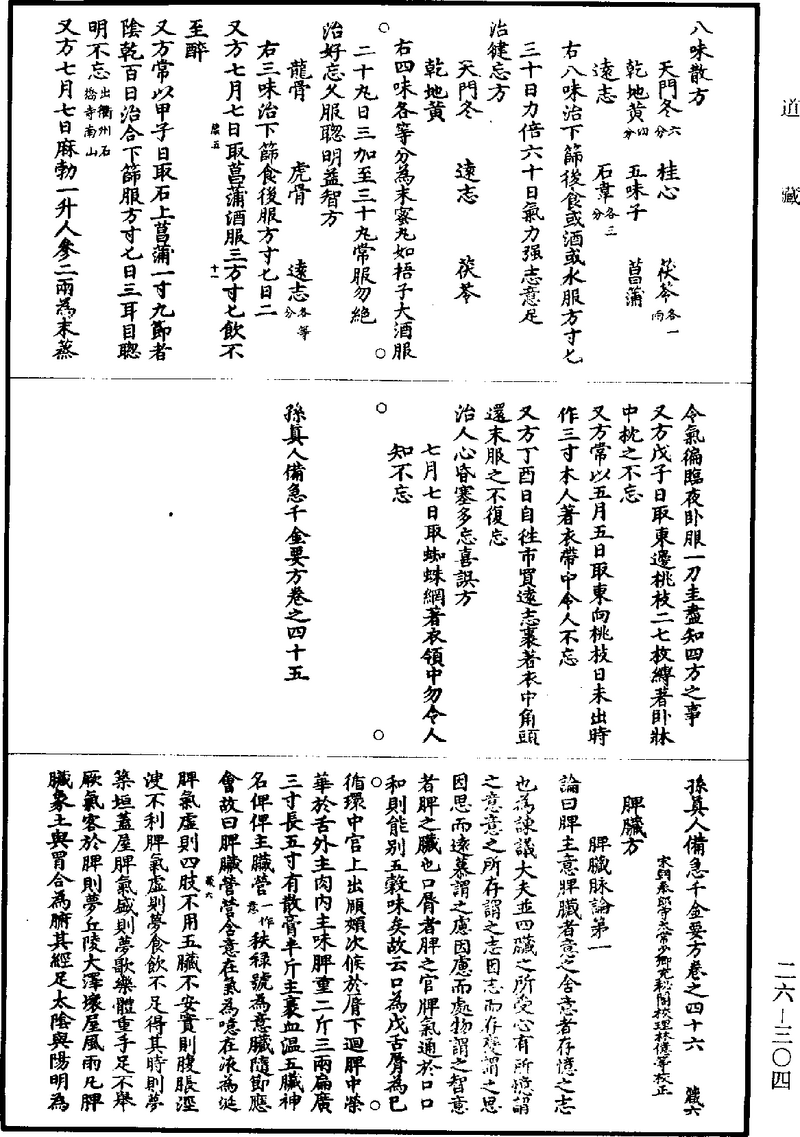 道藏
八味散方
天門冬六分 桂心 茯苓各一兩
乾地黃四分 五味子 菖蒲
遠志 石韋各三分
右八味治下篩後食或酒或水服方寸匕
三十日力倍六十日氣力强志意足
治健忘方
天門冬 遠志 茯苓
乾地黃
右四味各等分為末蜜丸如梧子大酒服
二十九日三加至三十九常服勿絶
治好忘久服聰明益智方
龍骨 虎骨 遠志各等分
右三味治下篩食後服方寸匕日二
又方七月七日取菖蒲酒服三方寸匕飲不
至醉
又方常以甲子日取石上菖蒲一寸九節者
陰乾百日治合下篩服方寸匕日三耳目聰
明不忘出衢州石橋寺南山
又方七月七日麻勃一升人參二兩為末蒸
令氣徧臨夜卧服一刀圭盡知四方之事
又方戊子日取東邊桃枝二七枚縛著卧牀
中枕之不忘
又方常以五月五日取東向桃枝日未出時
作三寸木人著衣帶中令人不忘
又方丁酉日自往市買遠志裹著衣中角頭
還末服之不復忘
治人心昏塞多忘喜誤方
七月七日取蜘蛛網著衣領中勿令人
知不忘
孫真人備急千金要方卷之四十五
孫真人備急千金要方卷之四十六 藏六
宋朝奉郎守太常少卿充秘閣校理林億等校正
脾臟方
脾臟脉論第一
論曰脾主意脾臟者意之舍意者存憶之志
也為諫議大夫並四臟之所受心有所憶謂
之意意之所存謂之志因志而存變謂之思
因思而遠慕謂之慮因慮而處物謂之智意
者脾之臟也口脣者脾之官脾氣通於口口
和則能别五穀味矣故云口為戊舌脣為己
循環中宫上出頤頰次候於脣下迴脾中榮
華於舌外主肉内主味脾重二斤三兩扁廣
三寸長五寸有散膏半斤主裹血温五臟神
名俾俾主臟營一作意秩禄號為意臟隨節應
會故曰脾臟營營舍意在氣為噫在液為涎
脾氣虚則四肢不用五臟不安實則腹脹涇
溲不利脾氣虚則夢食飲不足得其時則夢
築垣蓋屋脾氣盛則夢歌樂體重手足不舉
厥氣客於脾則夢丘陵大澤壞屋風雨凡脾
臟象土與胃合為腑其經足太陰與陽明為
二六—三〇四